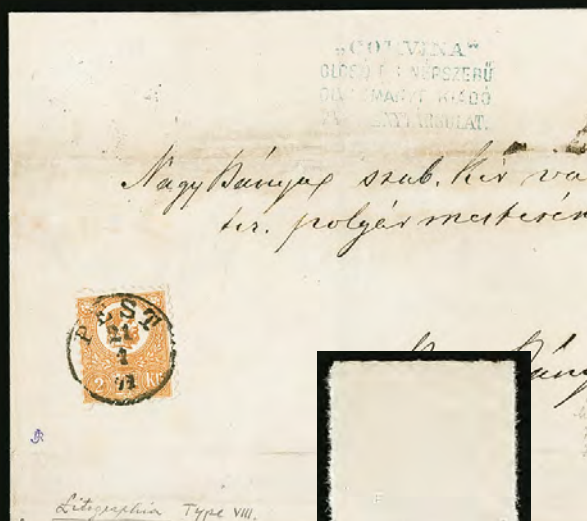 „CORVINA“
OLCSÓ ÉS NÉPSZERŰ
KIADÓ
Nagy Bánya szab. kir va
polgármesterén
PEST
21
4
71
2 KR
Litographia Type VIII.